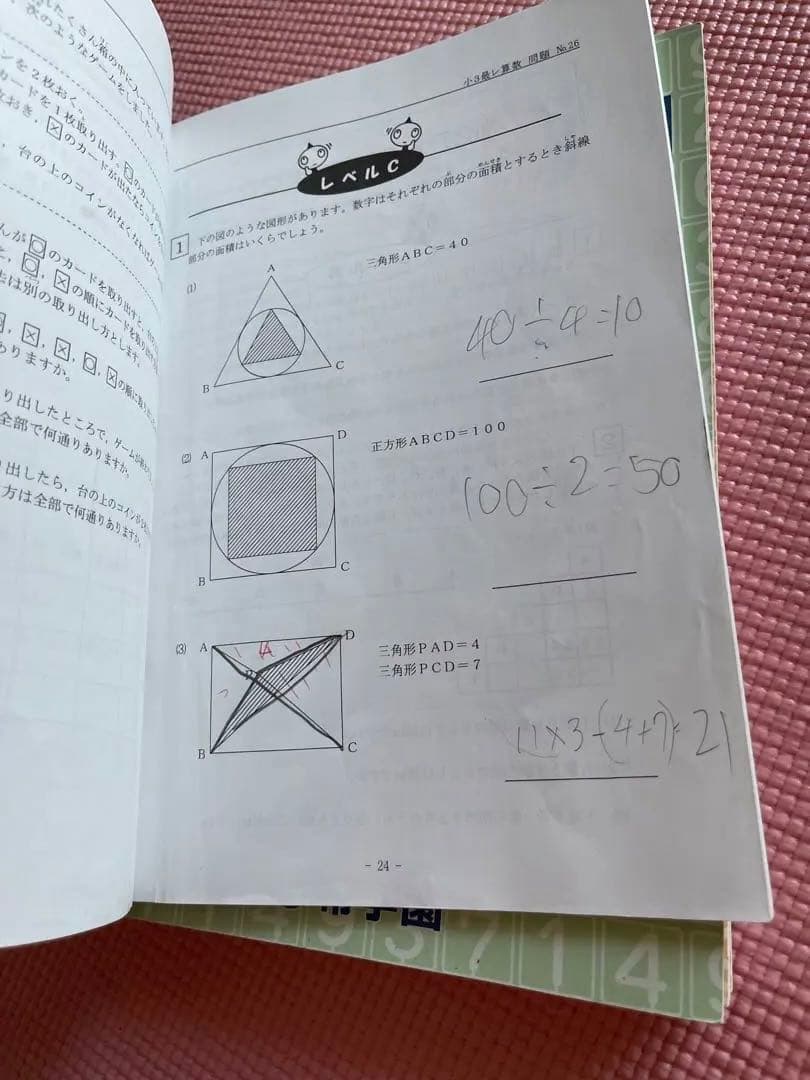 れたくさん箱の中に入って
次のようなゲームをしま
ンを2枚おく。
カードを1枚取り出す。
おき，×のカードが出たらコイン
，台の上のコインがなくなれば
んが○のカードを取り出す
○，×の順にカードを取り出
とは別の取り出し方とします。
，×，×，○，×の順に取り
ありますか。
り出したところで，ゲームが
全部で何通りありますか。
り出したら，台の上のコインが
方は全部で何通りありますか。
小3最レ算数 問題 №26
レベルC
1 下の図のような図形があります。数字はそれぞれの部分の面積とするとき斜線
ぶ めんせき しゃ
部分の面積はいくらでしょう。
(1)
三角形ABC=40
A
B
C
40÷4=10
(2)
正方形ABCD=100
A
D
B
C
100÷2=50
(3)
三角形PAD=4
三角形PCD=7
A
D
4
P
B
C
11×3-(4+7)=21
- 24 -
学園
9 3 7 1 4 9